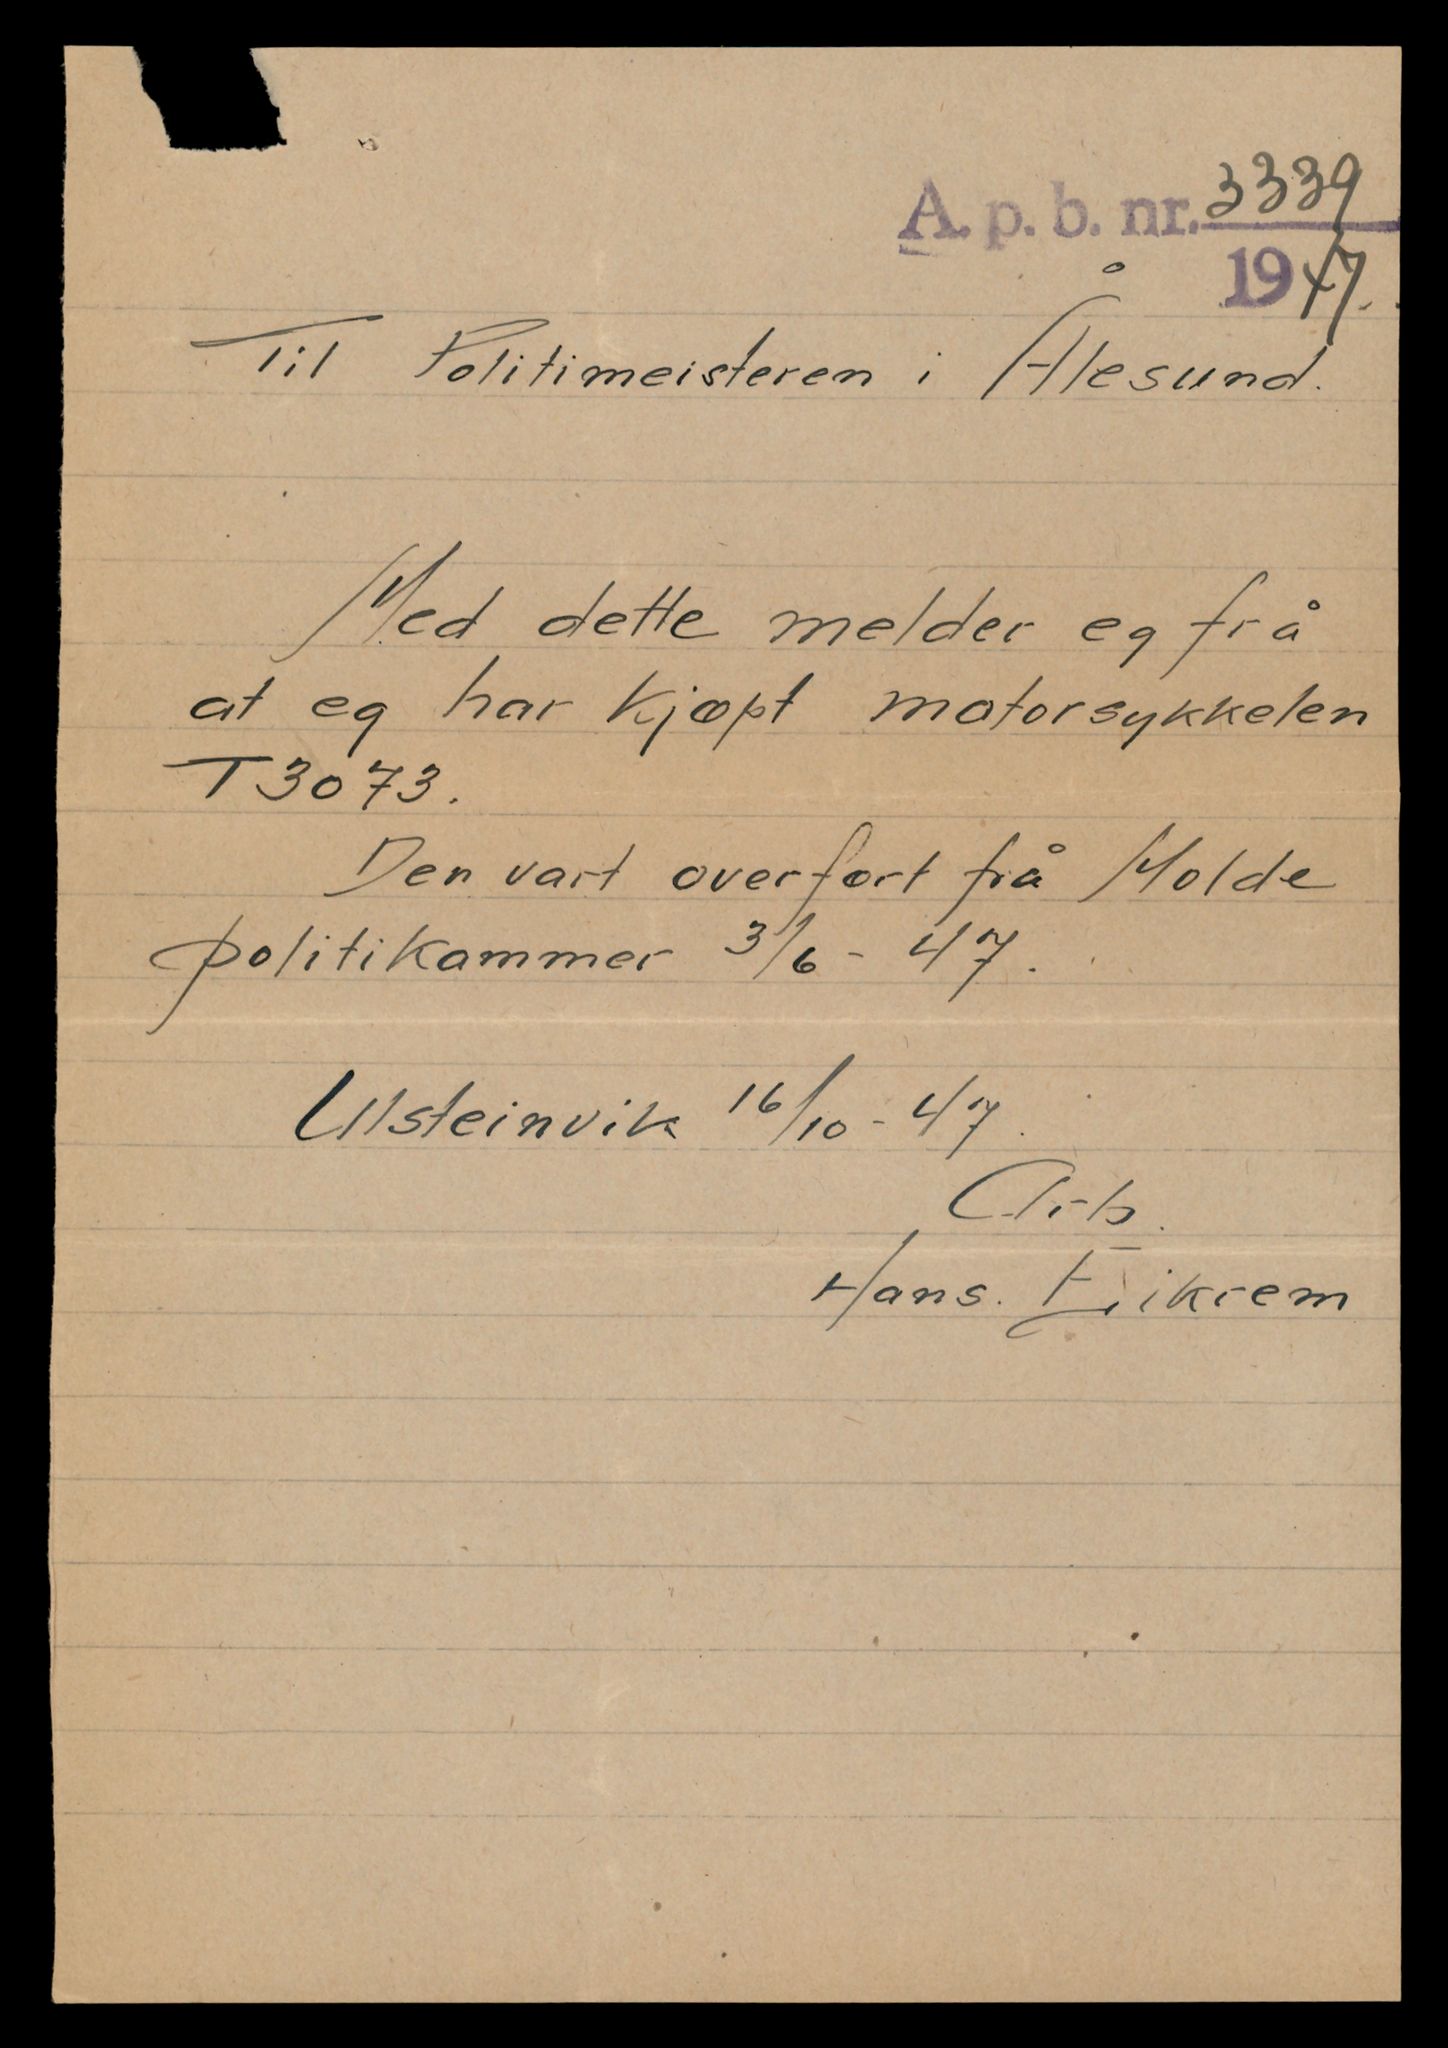 A. p. b. nr. 3339
1947.
Til Politimeisteren i Ålesund.
Med dette melder eg frå
at eg har kjøpt motorsykkelen
T3073.
Den vart overført frå Molde
politikammer 3/6 - 47.
Ulsteinvik 16/10 - 47.
Arb.
Hans. Eikrem